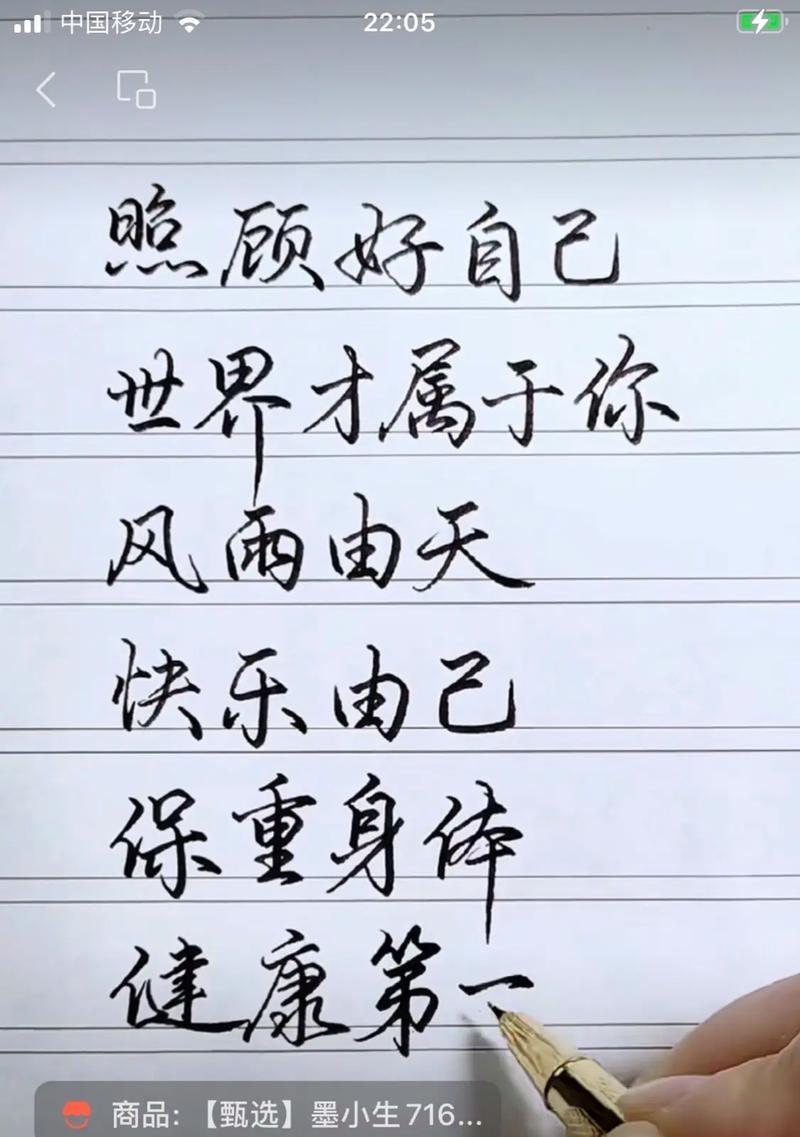 中国移动 22:05
照顾好自己
世界才属于你
风雨由天
快乐由己
保重身体
健康第一
商品:【甄选】墨小生716...